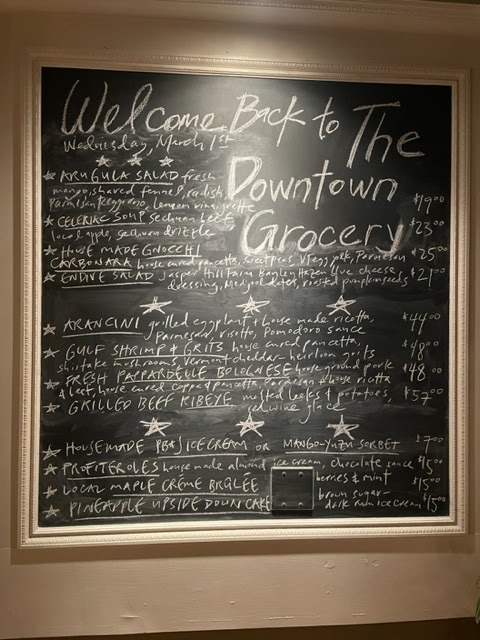 Welcome Back to The
Wednesday, March 1st
Downtown
Grocery
ARUGULA SALAD fresh
mango, shaved fennel, radish, $19.00
Parmisan Reggiano, lemon vinaigrette
CELERIAC SOUP sechuan beef $23.00
local apple, sechuan drizzle
HOUSE MADE GNOCCHI $25.00
CARBONARA house cured pancetta, sweet peas, egg yolk, Parmesan
ENDIVE SALAD Jasper Hill Farm Bayley Hazen blue cheese $21.00
dressing, Medjool dates, roasted pumpkin seeds
ARANCINI grilled eggplant & house made ricotta, $44.00
Parmesan risotto, Pomodoro sauce
GULF SHRIMP & GRITS house cured pancetta, $48.00
shiitake mushrooms, Vermont cheddar-heirloom grits
FRESH PAPPARDELLE BOLOGNESE house ground pork $48.00
& beef, house cured pancetta, Parmisan & house ricotta
GRILLED BEEF RIBEYE melted leeks & potatoes, $57.00
red wine glace
HOUSEMADE PB&J ICE CREAM OR MANGO-YUZU SORBET $7.00
PROFITEROLES house made almond ice cream, chocolate sauce $15.00
LOCAL MAPLE CRÈME BRULEE berries & mint $15.00
PINEAPPLE UPSIDE DOWN CAKE brown sugar- $15.00
dark rum ice cream